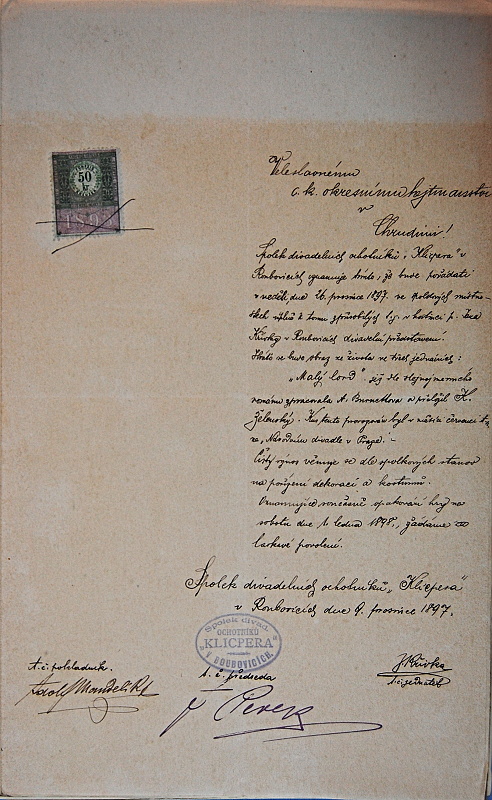 50
kr
1897
Veleslavnému
c. k. okresnímu hejtmanství
v
Chrudimi!
Spolek divadelních ochotníků „Klicpera" v
Boubovicích oznamuje tímto, že bude pořádati
v neděli dne 26. prosince 1897. ve spolkových místno-
stech výhradně k tomu způsobilých t. j. v hostinci p. Jana
Křivky v Roubovicích divadelní představení.
Hráti se bude obraz ze života ve třech jednáních:
„Malý lord" jejž dle stejnojmenného
románu zpracovala A. Burnettova a přeložil K.
Želenský. Kus tento provozován byl v měsíci červenci t. r.
ve „Národním divadle v Praze." –
Čistý výnos věnuje se dle spolkových stanov
na pořízení dekorací a kostumů.
Oznamujíce současně opakování hry na
sobotu dne 1. ledna 1898., žádáme za
laskavé povolení.
Spolek divadelních ochotníků „Klicpera"
v Roubovicích dne 9. prosince 1897.
Spolek divad.
OCHOTNÍKŮ
„KLICPERA"
V ROUBOVICÍCH.
t. č. pokladník.
Adolf
t. č. předseda
JKřivka
t. č. jednatel